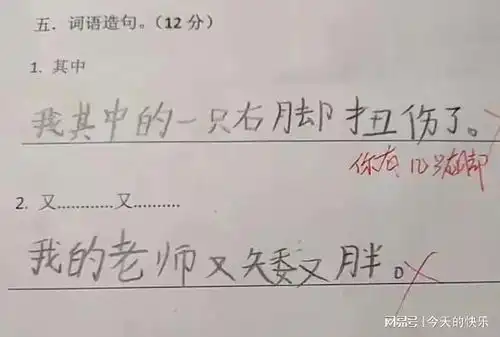 五．词语造句。（12 分）
1. 其中
我其中的一只右脚扭伤了。
你有几只右脚
2. 又............又..........
我的老师又矮又胖。
网易号 | 今天的快乐